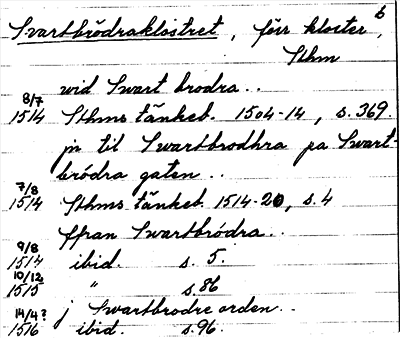 b
Svartbrödraklostret, förr kloster,
Sthm
wid Swart brodra..
8/7
1514 Sthms tänkeb. 1504-14, s. 369.
jn til Swartbrodhra pa Swart-
brödra gaten..
7/8
1514 Sthms tänkeb. 1514-20, s. 4
ffran Swartbródra..
9/8
1514 ibid. s. 5.
10/12
1515 " s. 86
j Swartbrodre orden..
14/4?
1516 ibid. s. 96.